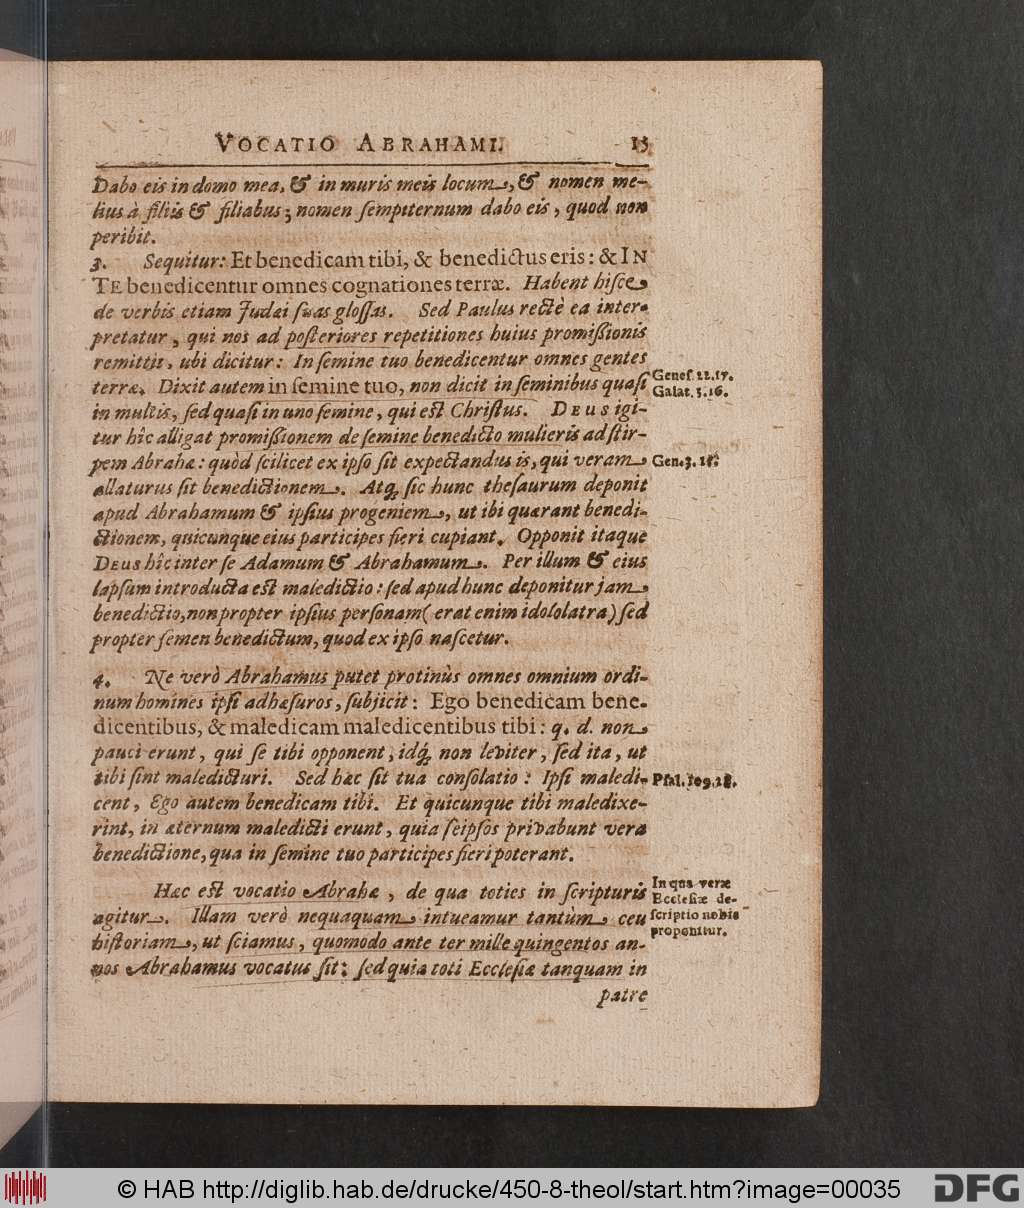 VOCATIO ABRAHAMI. 15
Dabo eis in domo mea, & in muris meis locum, & nomen me-
lius à filiis & filiabus; nomen sempiternum dabo eis, quod non
peribit.
3. Sequitur: Et benedicam tibi, & benedictus eris: & IN
TE benedicentur omnes cognationes terræ. Habent hisce
de verbis etiam Judæi suas glossas. Sed Paulus rectè ea inter-
pretatur, qui nos ad posteriores repetitiones huius promissionis
remittit, ubi dicitur: In semine tuo benedicentur omnes gentes
terræ. Dixit autem in semine tuo, non dicit in seminibus quasi
Genes. 22.17.
Galat. 3.16.
in multis, sed quasi in uno semine, qui est Christus. DEUS igi-
tur hîc alligat promissionem de semine benedicto mulieris ad stir-
pem Abrahæ: quòd scilicet ex ipso sit expectandus is, qui veram
Gen. 3. 15.
allaturus sit benedictionem. Atq́; sic hunc thesaurum deponit
apud Abrahamum & ipsius progeniem, ut ibi quærant benedi-
ctionem, quicunque eius participes fieri cupiant. Opponit itaque
DEUS hîc inter se Adamum & Abrahamum. Per illum & eius
lapsum introducta est maledictio: sed apud hunc deponitur jam
benedictio, non propter ipsius personam (erat enim idololatra) sed
propter semen benedictum, quod ex ipso nascetur.
4. Ne verò Abrahamus putet protinùs omnes omnium ordi-
num homines ipsi adhæsuros, subjicit: Ego benedicam bene-
dicentibus, & maledicam maledicentibus tibi: q. d. non
pauci erunt, qui se tibi opponent, idq́; non leviter, sed ita, ut
tibi sint maledicturi. Sed hæc sit tua consolatio: Ipsi maledi-
Psal. 109.28.
cent, Ego autem benedicam tibi. Et quicunque tibi maledixe-
rint, in æternum maledicti erunt, quia seipsos privabunt vera
benedictione, qua in semine tuo participes fieri poterant.
Hæc est vocatio Abrahæ, de qua toties in scripturis
agitur. Illam verò nequaquam intueamur tantùm ceu
historiam, ut sciamus, quomodo ante ter mille quingentos an-
nos Abrahamus vocatus sit: sed quia toti Ecclesiæ tanquam in
In qua veræ
Ecclesiæ de-
scriptio nobis
proponitur.
patre
© HAB http://diglib.hab.de/drucke/450-8-theol/start.htm?image=00035
DFG